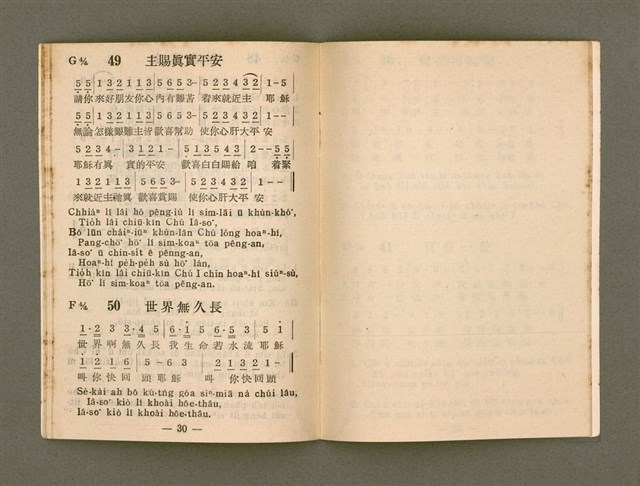 G 4/4 49 主賜眞實平安
5 5 1 3 2 1 1 3 5 6 5 3- 5 2 3 4 3 2 1-5
請你來好朋友你心內有艱苦 着來就近主 耶穌
5 5 1 3 2 1 1 3 5 6 5 3- 5 2 3 4 3 2 1--
無論怎樣艱難主皆歡喜幫助 使你心肝大平安
5 2 3 4- 3 1 2 1- 5 1 3 5 4 3 2--5 5
耶穌有眞 實的平安 歡喜白白賜給 咱 着緊
1 3 2 1 1 3 5 6 5 3- 5 2 3 4 3 2 1--
來就近主祂眞 歡喜賞賜 使你心肝大平安
Chhiáⁿ lí lâi hó pêng-iú lí sim-lāi ū khùn-khó͘,
Tio̍h lâi chiū-kīn Chú Iâ-so͘.
Bô lūn cháiⁿ-iūⁿ khùn-lân Chú lóng hoaⁿ-hí,
Pang-chō͘ hō͘ lí sim-koaⁿ tōa pêng-an,
Iâ-so͘ ū chin-si̍t ê pêng-an,
Hoaⁿ-hí pe̍h-pe̍h sù hō͘ lán,
Tio̍h kín lâi chiū-kīn Chú I chin hoaⁿ-hí siúⁿ-sù,
Hō͘ lí sim-koaⁿ tōa pêng-an.
F 4/4 50 世界無久長
1·2 3 3·4 5 6·1 5 6·5 3 5 1
世界啊無久長 我生命若水流 耶穌
1 2 1 6 5-6 3 2 1 3 2 1-
叫你快回 頭耶穌 叫 你快回頭
Sè-kài ah bô kú-tn̂g góa sìⁿ-miā ná chúi lâu,
Iâ-so͘ kiò lí khoài hôe-thâu,
Iâ-so͘ kiò lí khoài hôe-thâu.
— 30 —